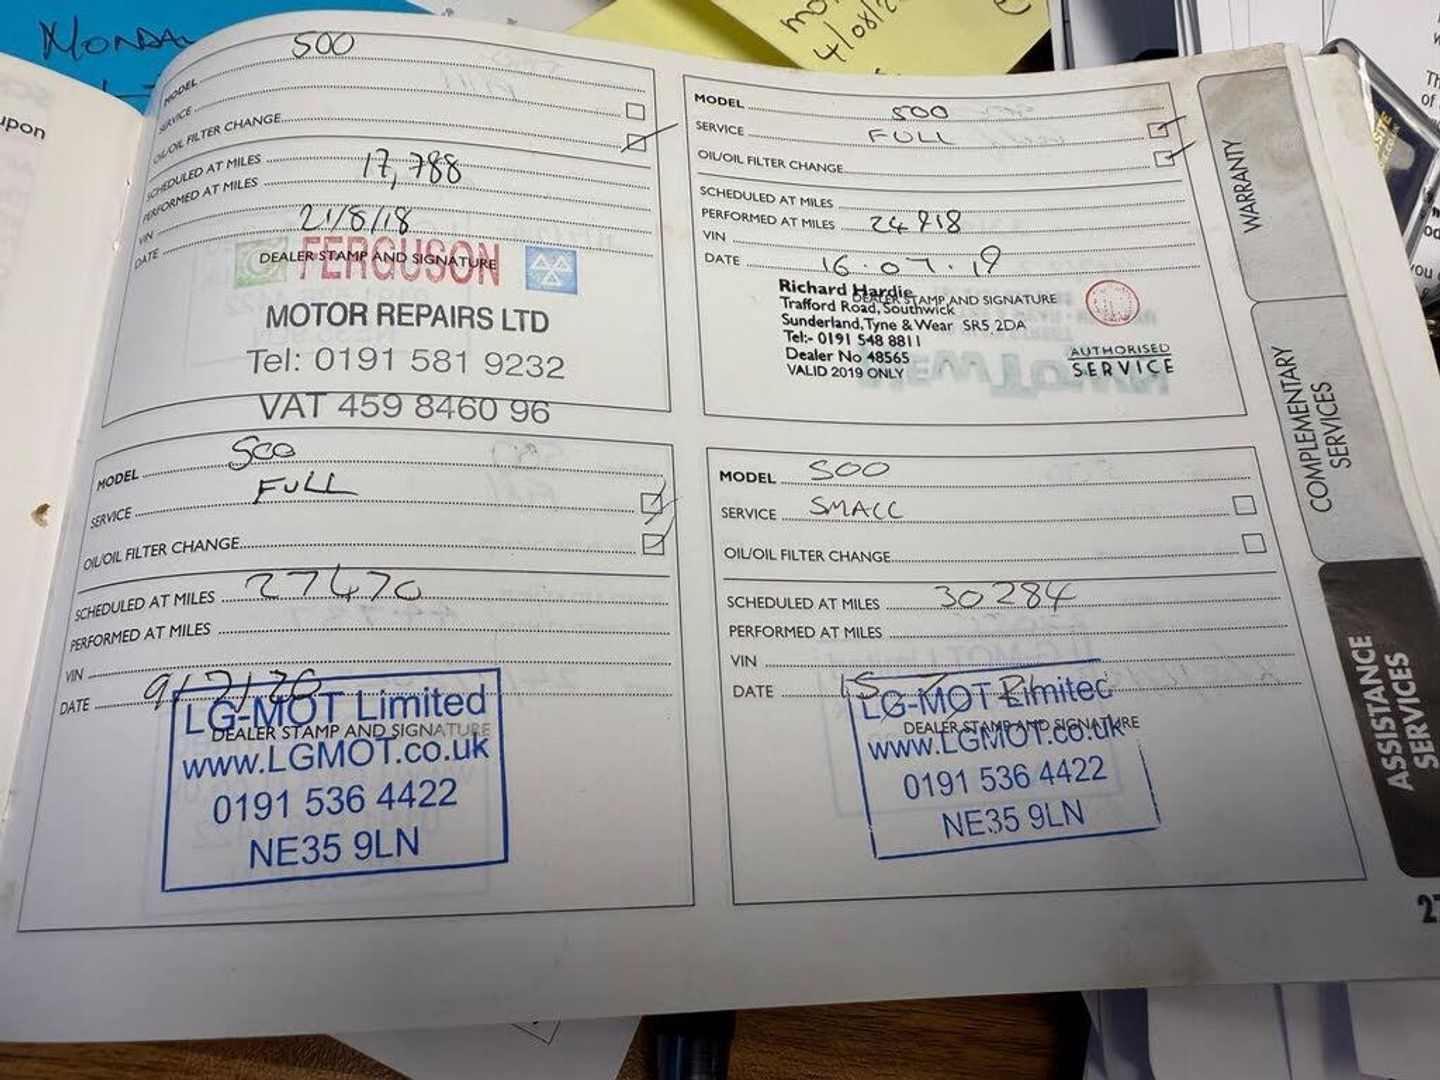 MONDAY
upon
MODEL 500
SERVICE
OIL/OIL FILTER CHANGE
SCHEDULED AT MILES
PERFORMED AT MILES 17,788
VIN
DATE 21/8/18
DEALER STAMP AND SIGNATURE
FERGUSON
MOTOR REPAIRS LTD
Tel: 0191 581 9232
VAT 459 8460 96
MODEL 500
SERVICE FULL
OIL/OIL FILTER CHANGE
SCHEDULED AT MILES
PERFORMED AT MILES 24918
VIN
DATE 16.07.19
DEALER STAMP AND SIGNATURE
Richard Hardie
Trafford Road, Southwick
Sunderland, Tyne & Wear SR5 2DA
Tel:- 0191 548 8811
Dealer No 48565
VALID 2019 ONLY
AUTHORISED
SERVICE
MODEL 500
SERVICE FULL
OIL/OIL FILTER CHANGE
SCHEDULED AT MILES 27470
PERFORMED AT MILES
VIN
DATE 9/7/20
DEALER STAMP AND SIGNATURE
LG-MOT Limited
www.LGMOT.co.uk
0191 536 4422
NE35 9LN
MODEL 500
SERVICE SMALL
OIL/OIL FILTER CHANGE
SCHEDULED AT MILES 30284
PERFORMED AT MILES
VIN
DATE 15 7 21
DEALER STAMP AND SIGNATURE
LG-MOT Limited
www.LGMOT.co.uk
0191 536 4422
NE35 9LN
WARRANTY
COMPLEMENTARY
SERVICES
ASSISTANCE
SERVICES
27